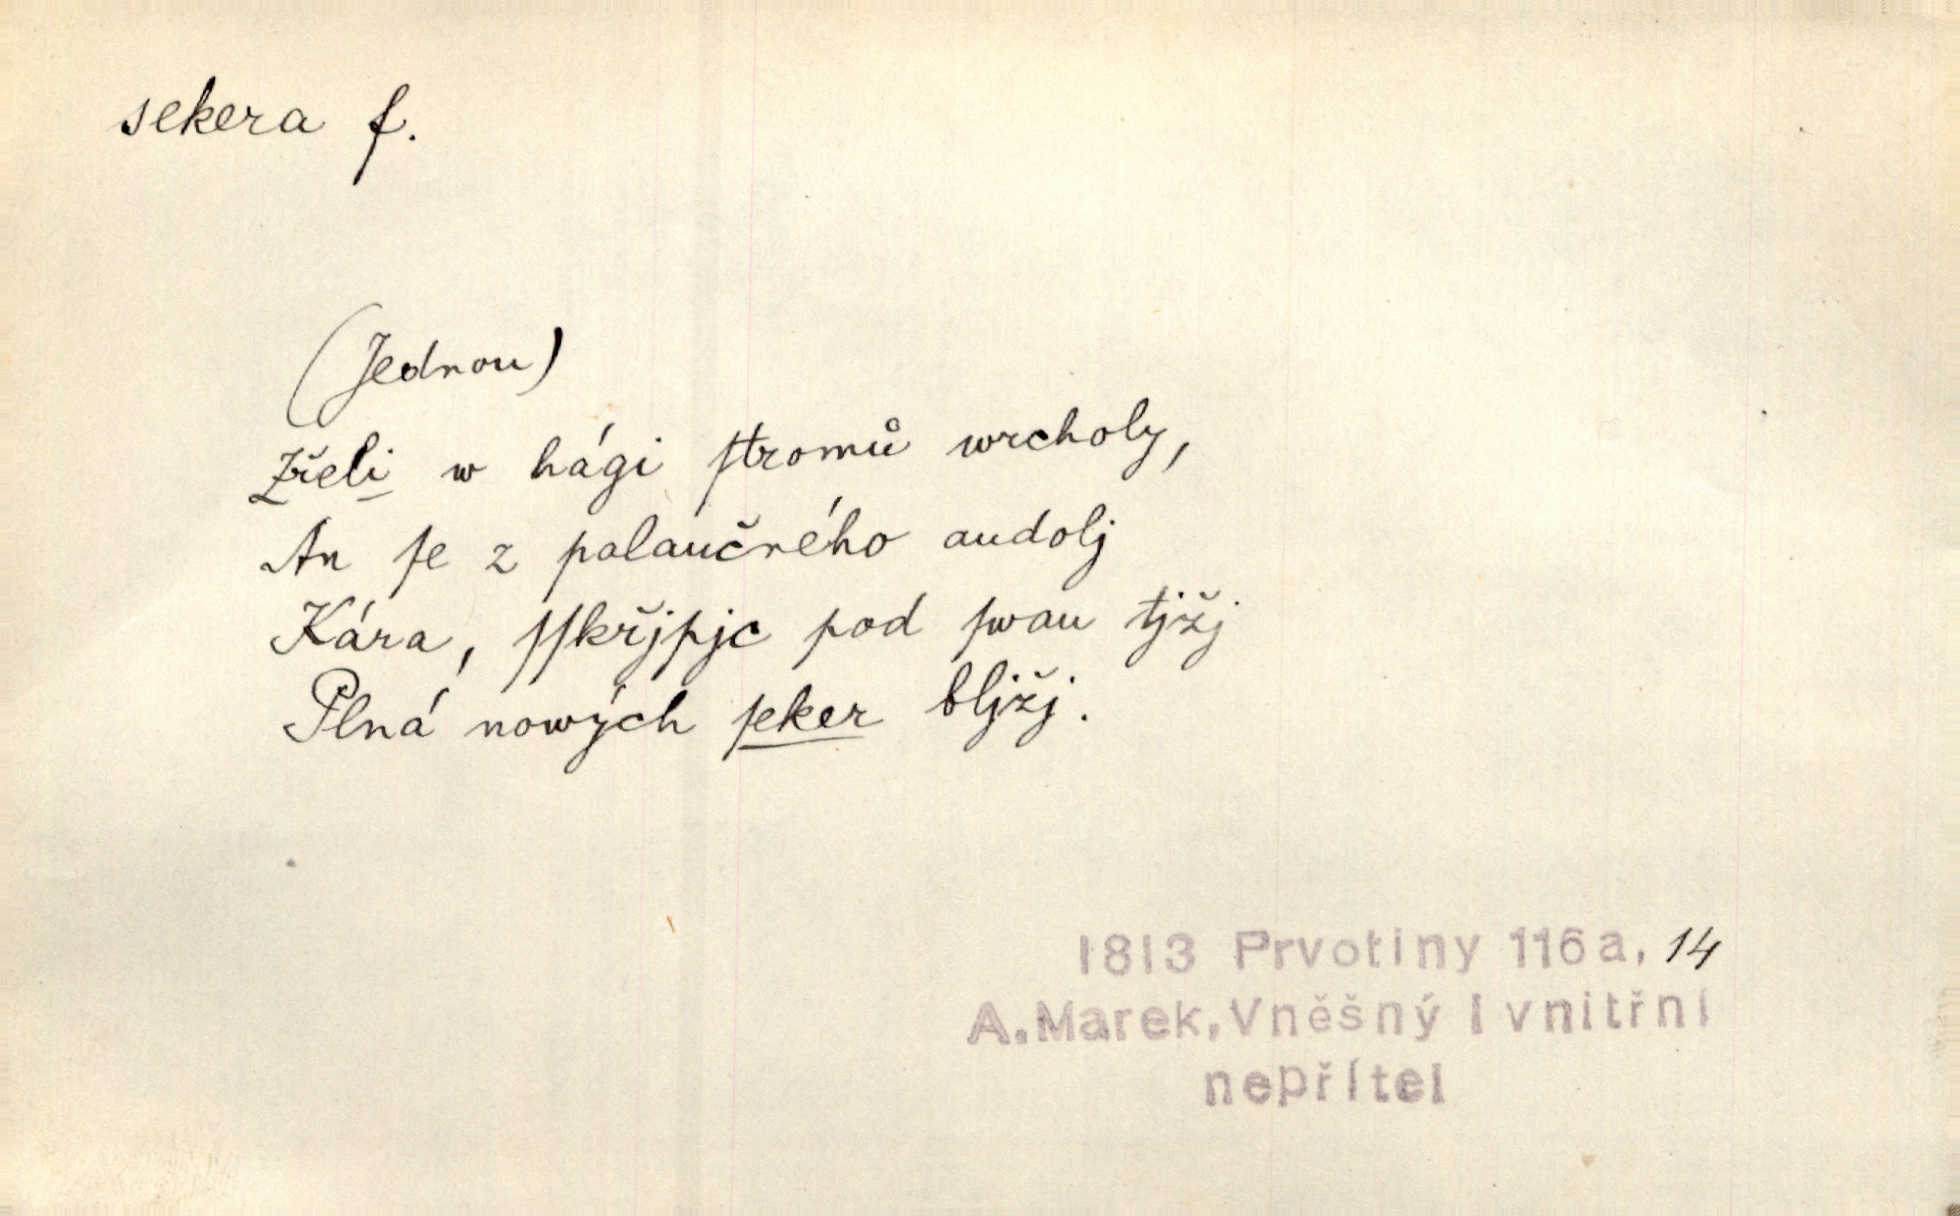 sekera f.
(Jednou)
Zřeli w hági ſtromů wrcholy,
An ſe z palaučného audolj
Kára, ſſkřjpjc pod ſwau tjžj
Plná nowých ſeker bljžj.
1813 Prvotiny 116a, 14
A. Marek, Vněšný i vnitřní
nepřítel